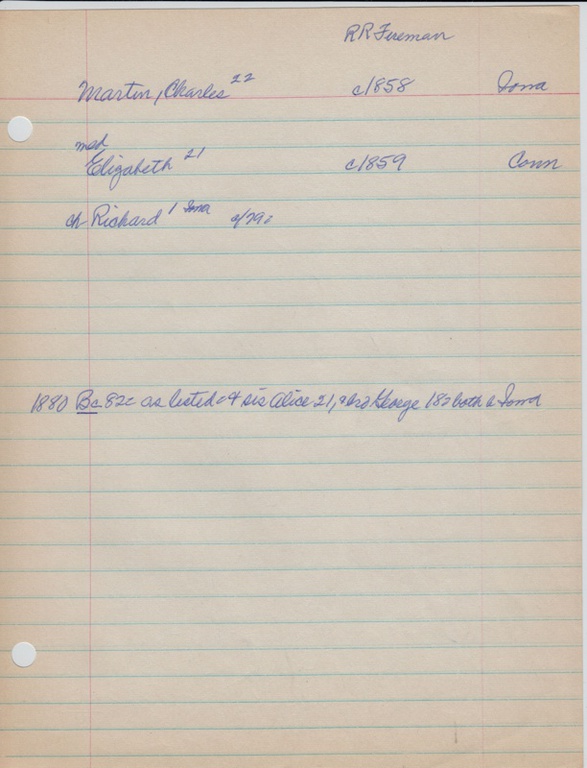 RR Fireman
Martin, Charles 22 c1858 Iowa
mad
Elizabeth 21 c1859 Conn
ch Richard 1 Iowa c/79
1880 Bc 82 as listed + sis Alice 21, & bro George 18 both Iowa